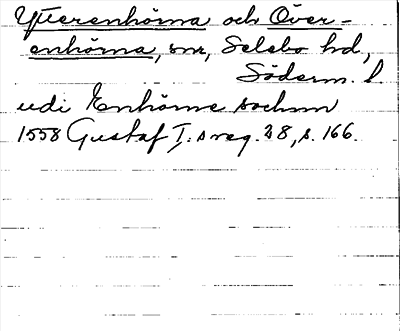 Ytterenhörna och Över-
enhörna, snr, Selebo hd,
Söderm. l
udi Enhörne sochnn
1558 Gustaf I:s reg. 28, s. 166.